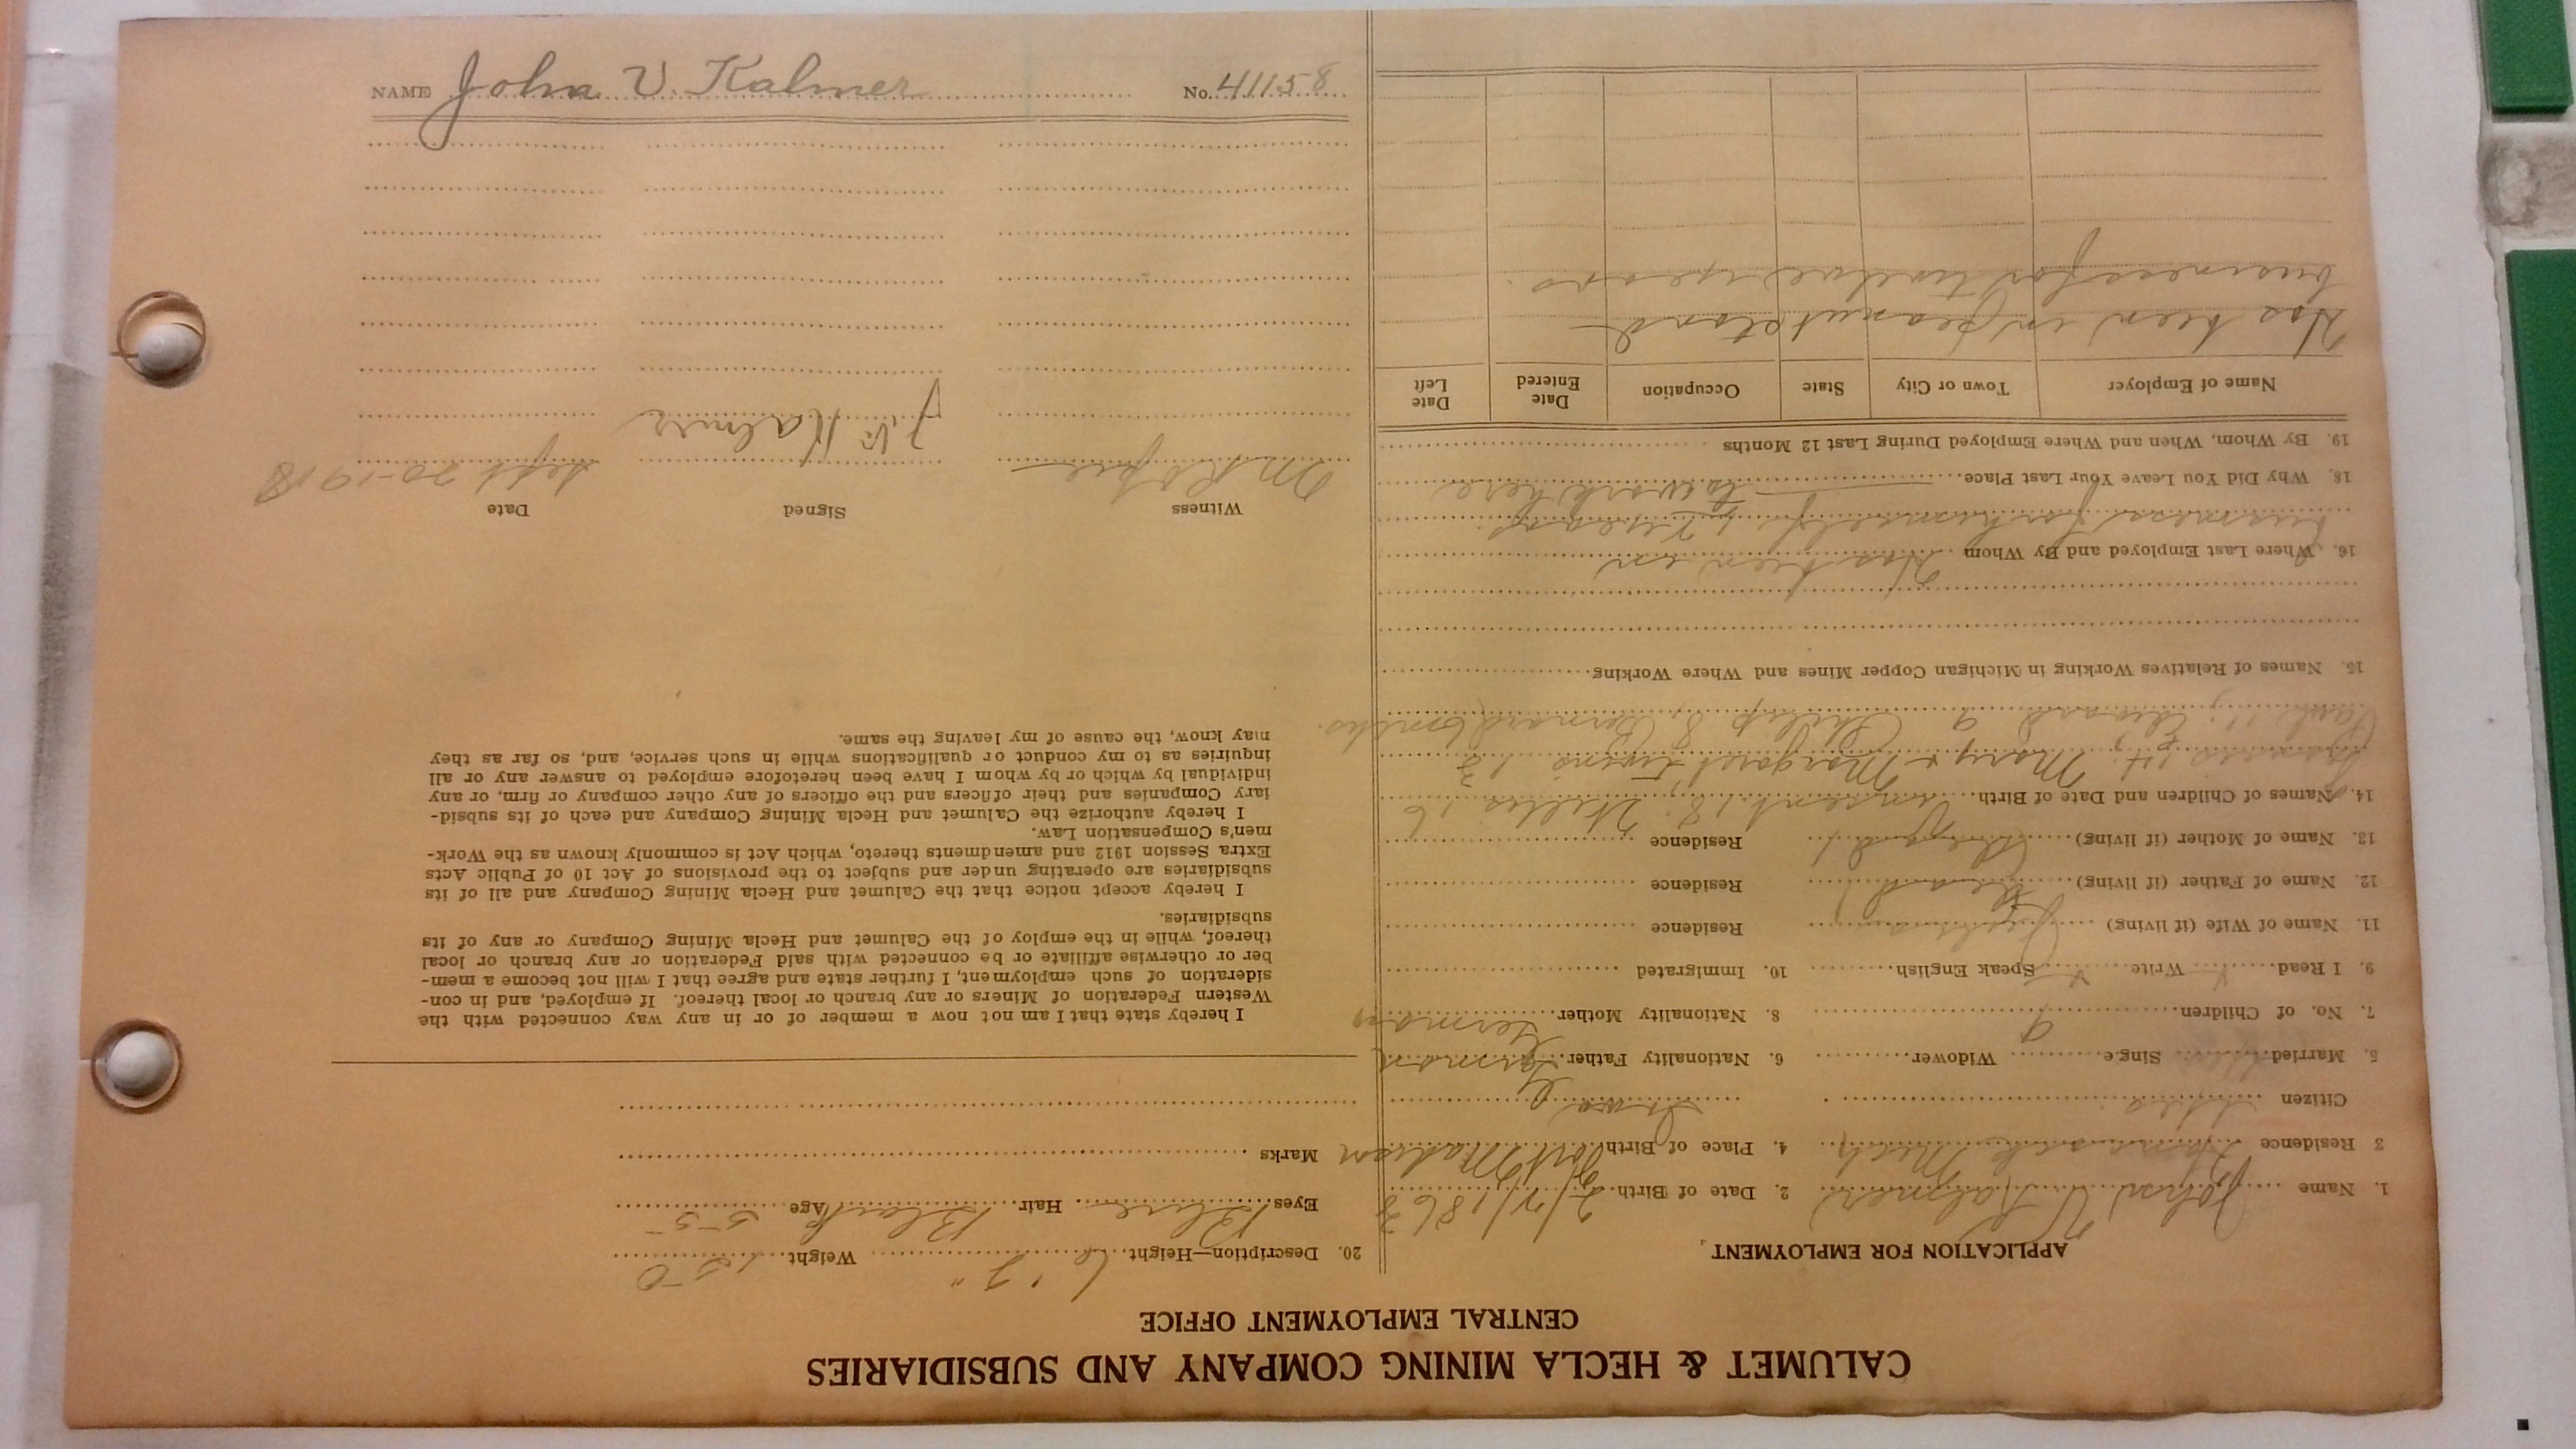 CALUMET & HECLA MINING COMPANY AND SUBSIDIARIES
CENTRAL EMPLOYMENT OFFICE
APPLICATION FOR EMPLOYMENT
1. Name John V Kalmer 2. Date of Birth 2/7/1863
3 Residence Hancock Mich 4. Place of Birth Fort Madison
Citizen Yes Iowa
5. Married Yes Single Widower 6. Nationality Father German
7. No. of Children 9 8. Nationality Mother Germany
9. I Read Write Speak English 10. Immigrated
11. Name of Wife (if living) Residence
12. Name of Father (if living) Dead Residence
13. Name of Mother (if living) Residence
14. Names of Children and Date of Birth Vincent 18, 16
Francis 14; Mary & Margaret twins 13
Paul 11; Edward 9 Philip 8, Bernard 6 mths.
15. Names of Relatives Working in Michigan Copper Mines and Where Working
16. Where Last Employed and By Whom Has been in
business for himself years.
18. Why Did You Leave Your Last Place to work here
19. By Whom, When and Where Employed During Last 12 Months
Name of Employer Town or City State Occupation Date Entered Date Left
Has been in peanut stand
business for twelve years.
20. Description—Height 6' 2" Weight 150
Eyes Blue Hair Black Age 55
Marks
I hereby state that I am not now a member of or in any way connected with the
Western Federation of Miners or any branch or local thereof. If employed, and in con-
sideration of such employment, I further state and agree that I will not become a mem-
ber or otherwise affiliate or be connected with said Federation or any branch or local
thereof, while in the employ of the Calumet and Hecla Mining Company or any of its
subsidiaries.
I hereby accept notice that the Calumet and Hecla Mining Company and all of its
subsidiaries are operating under and subject to the provisions of Act 10 of Public Acts
Extra Session 1912 and amendments thereto, which Act is commonly known as the Work-
men's Compensation Law.
I hereby authorize the Calumet and Hecla Mining Company and each of its subsid-
iary Companies and their officers and the officers of any other company or firm, or any
individual by which or by whom I have been heretofore employed to answer any or all
inquiries as to my conduct or qualifications while in such service, and, so far as they
may know, the cause of my leaving the same.
Witness Signed Date
J. V. Kalmer Sept 20-1918
NAME John V. Kalmer No. 41158